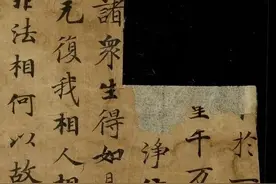 於
千万
淨
諸衆生得如是
无復我相人相
非法相何以故